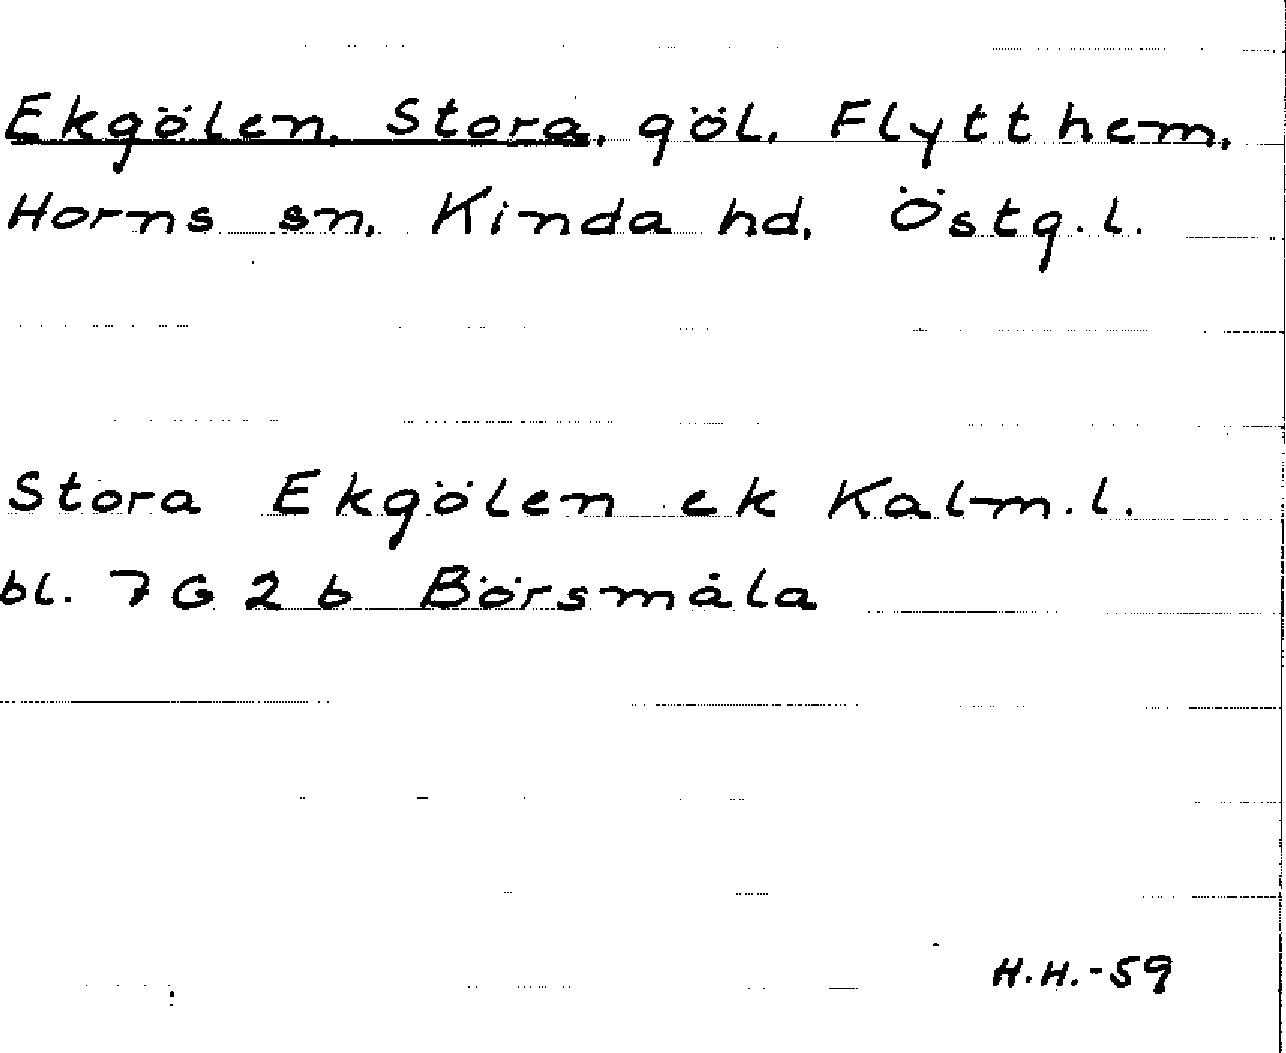 Ekgölen, Stora, göl, Flytthem,
Horns sn, Kinda hd, Östg.l.
Stora Ekgölen ek Kalm.l.
bl. 7 G 2 b Börsmåla
H.H.-59